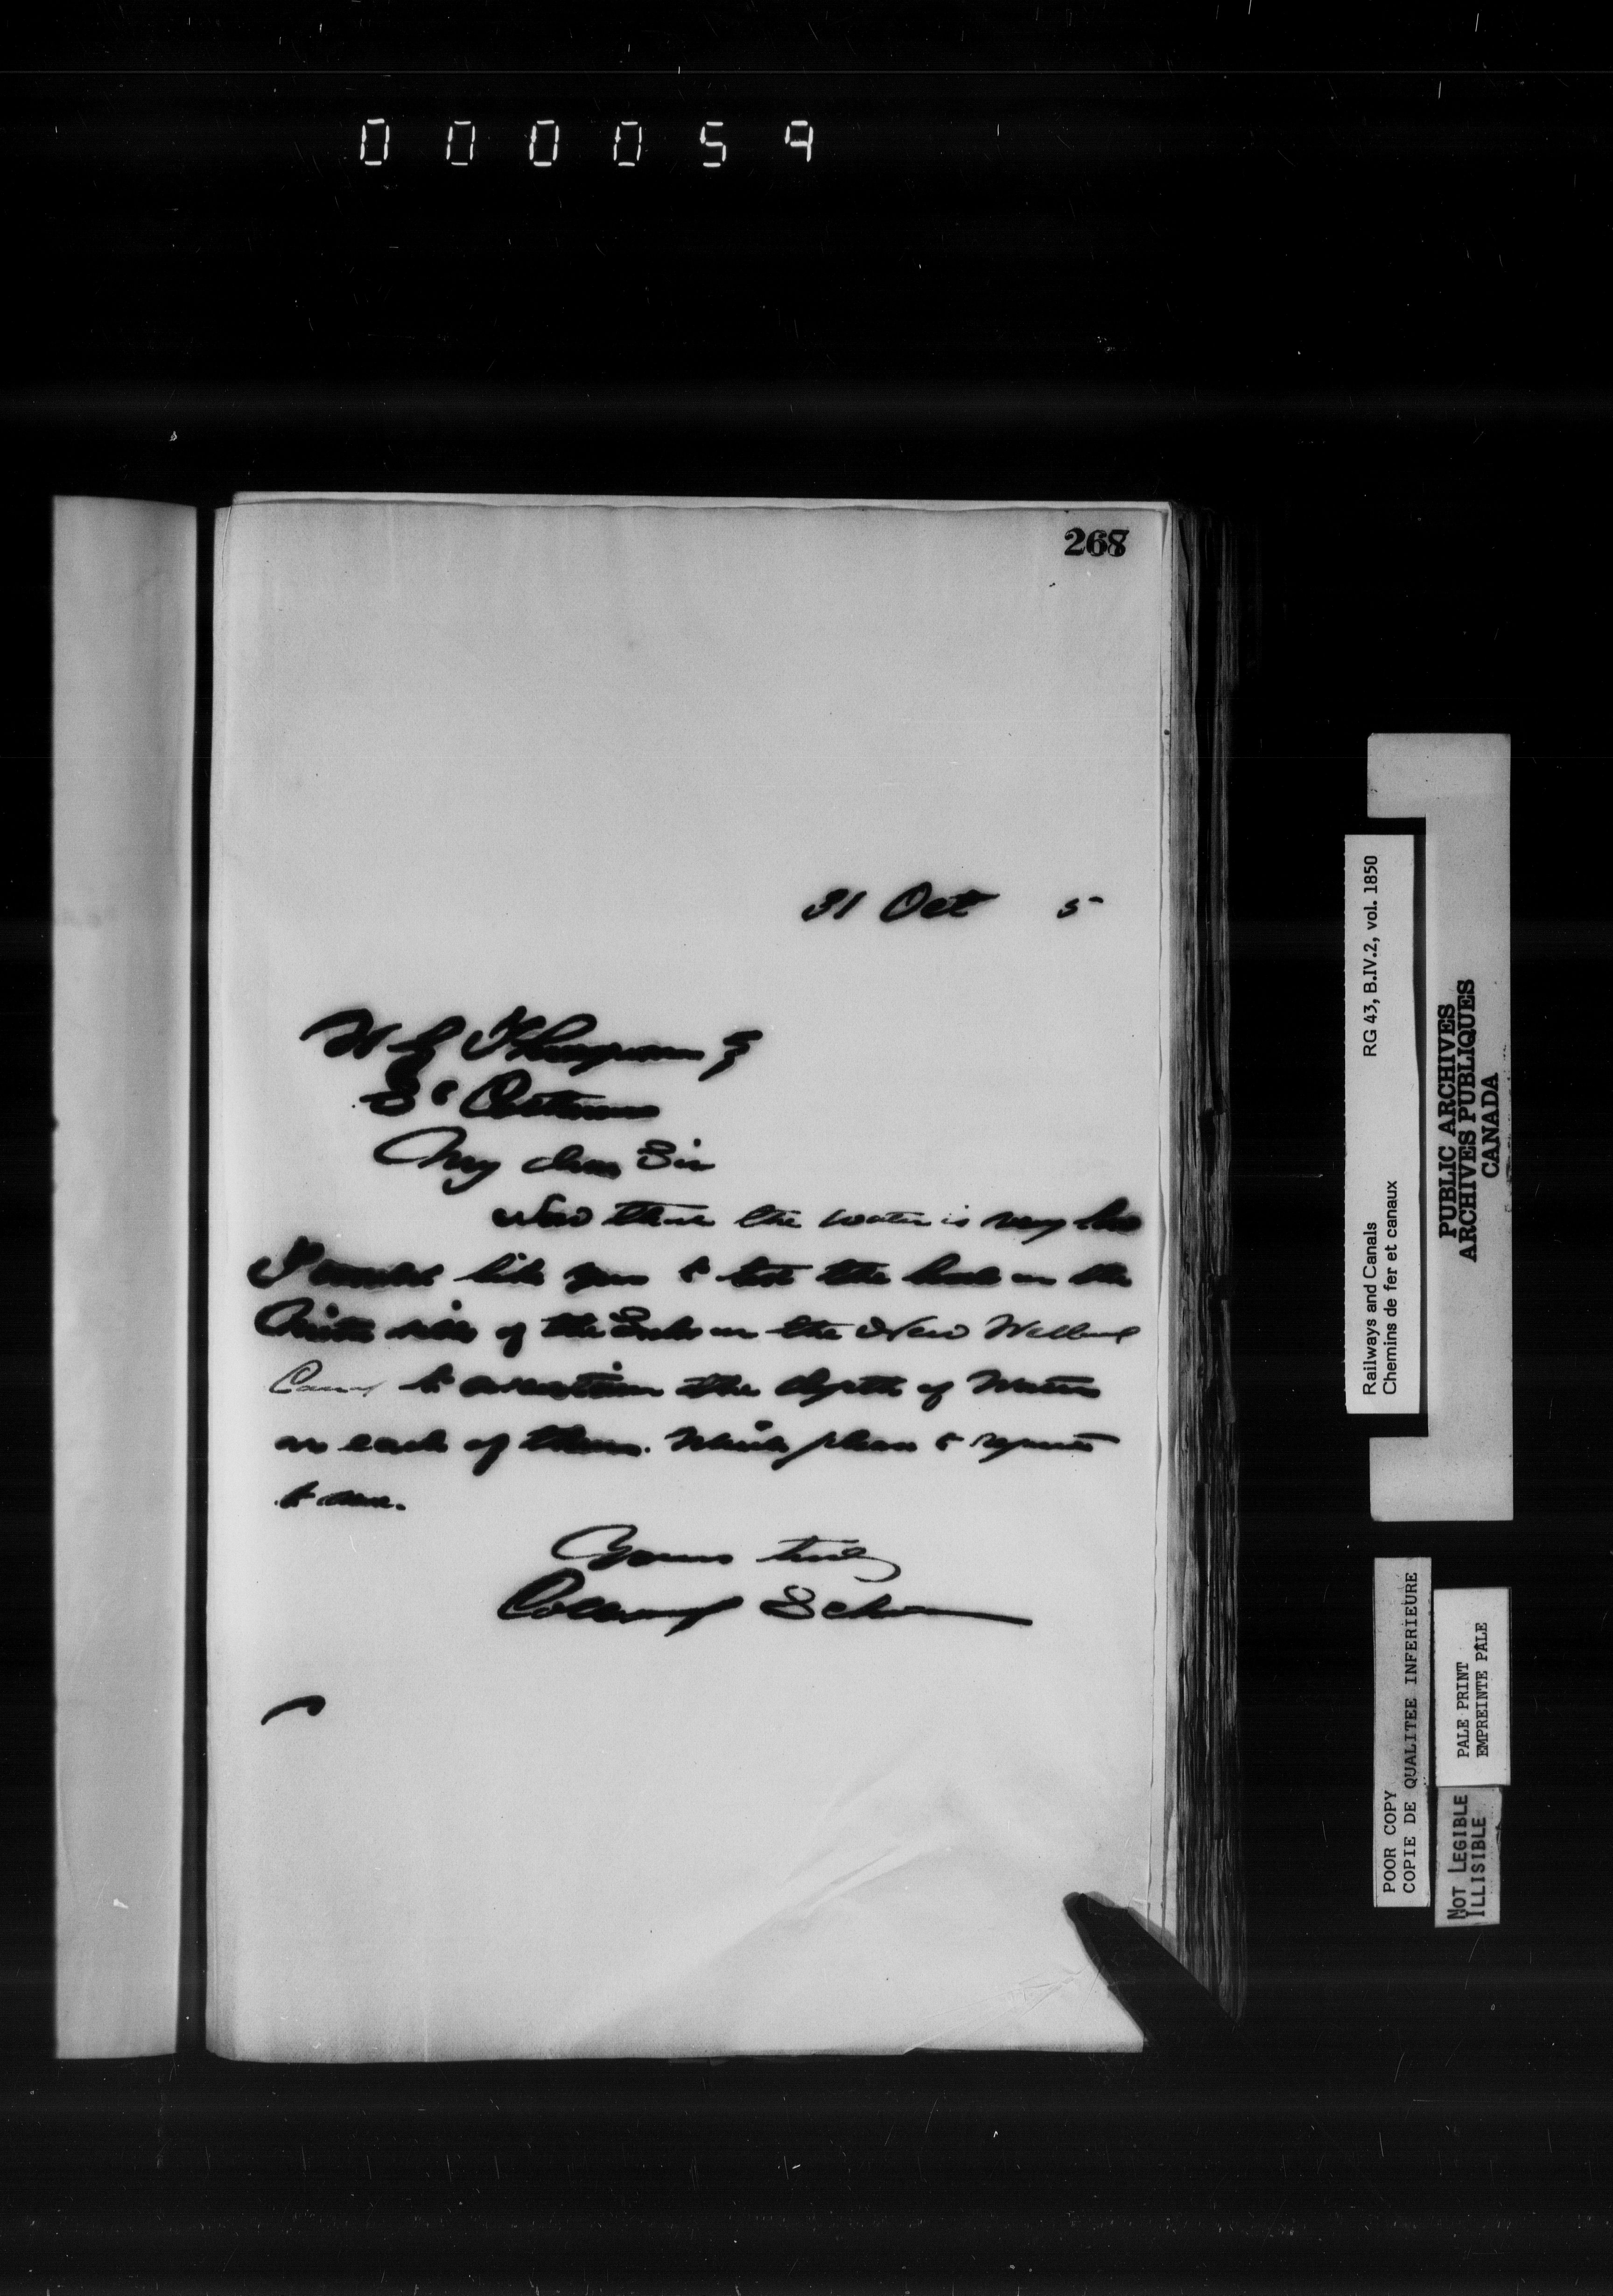 000059
268
31 Oct 5
W G Thompson Esq
St Catherines
My dear Sir
Now that the water is very low
I would like you to test the levels on the
Mitre sills of the Locks on the New Welland
Canal to ascertain the depth of water
on each of them. Which please to report
to me.
Yours truly
Collingwood Schreiber
Railways and Canals RG 43, B.IV.2, vol. 1850
Chemins de fer et canaux
PUBLIC ARCHIVES
ARCHIVES PUBLIQUES
CANADA
POOR COPY
COPIE DE QUALITEE INFERIEURE
PALE PRINT
EMPREINTE PÂLE
NOT LEGIBLE
ILLISIBLE